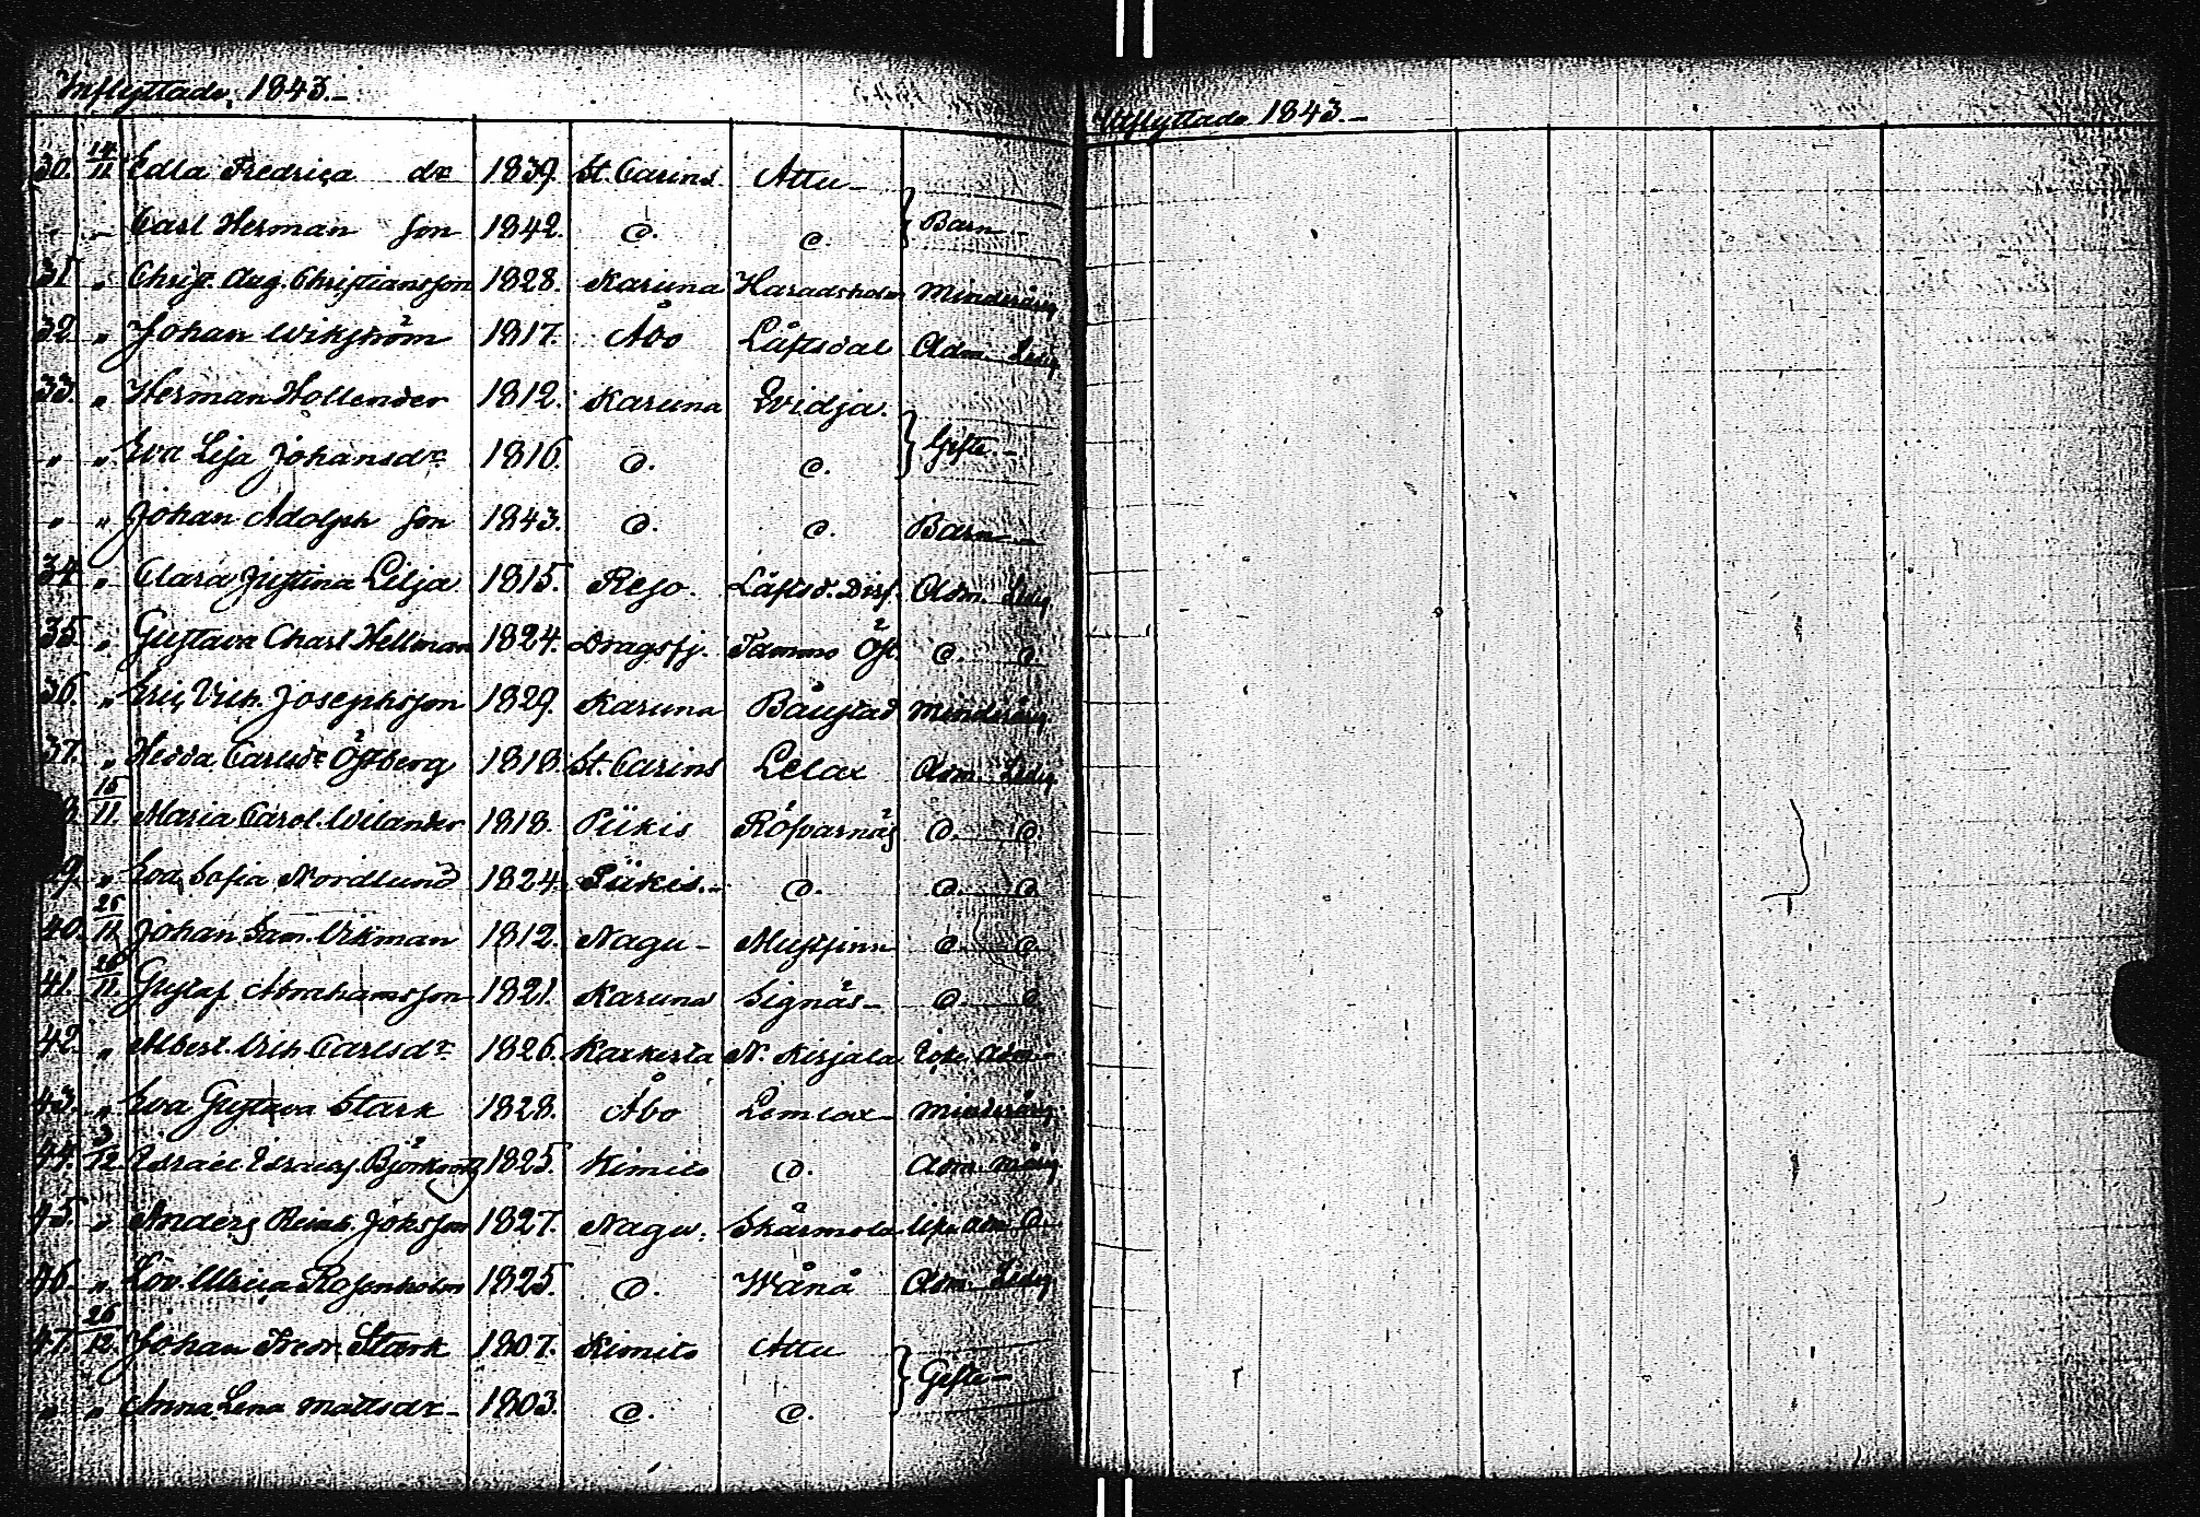 Inflyttade 1843.-
30. 14/11 Edla Fredrica dr 1839. St. Carins Attu -
" - Carl Herman son 1842. d. d. } Barn -
31 " Christ. Aug. Christiansson 1828. Karuna Haradsholm Minderårig
32. " Johan Wikström 1817. Åbo Låftsdal Adm. Ledig
33. " Herman Hollender 1812. Karuna Qvidja.
" " Eva Lisa Johansdr 1816. d. d. } Gifte. -
" " Johan Adolph son 1843. d. d. Barn -
34. " Clara Justina Lilja 1815. Reso. Låftsd. Adm. Ledig
35. " Gustava Charl Hellman 1824. Dragsfj. Tammo Öst. d. d.
36. " Eric Vilh. Josephsson 1829. Karuna Båustad Minderårig
37. " Hedda Carlsdr Östberg 1818. St. Carins Lelax Adm. Ledig
15/11. Maria Carol. Wilander 1818. Piikis Röfvarnäs d. d.
9. " Eva Sofia Nordlund 1824. Piikis. - d. d. d.
40. 25/11 Johan Sam. Vikman 1812. Nagu - Mustfinn d. d.
41. 26/11. Gustaf Abrahamsson 1821. Karuna Signäs - d. d.
42. " Albert. Ulr. Carlsdr 1826. Karkerta N. Kirjala Icke Adm
43. " Eva Gustava Stark 1828. Åbo Lemlax - Minderårig
44. 3/12. Israel Björkqvist 1825. Kimito d. Adm.
45. " Anders Reinh. 1827. Nagu. Skärmola d.
46. " Lov. Ulrica Rosenholm 1825. d. Wånå Adm. Ledig
47. 26/12. Johan Fredr. Stark 1807. Kimito Attu
" " Anna Lena Mattsdr - 1803. d. d. } Gifte -
Utflyttade 1843. -